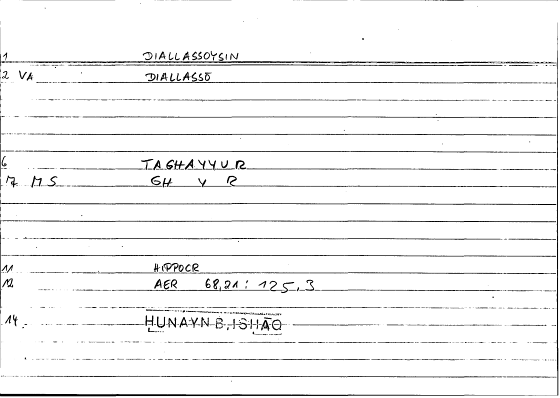 1 DIALLASSOYSIN
2 VA DIALLASSŌ
6 TAGHAYYUR
7 MS GH Y R
11 HIPPOCR
12 AER 68,21 : 125,3
14 HUNAYN B. ISHĀQ